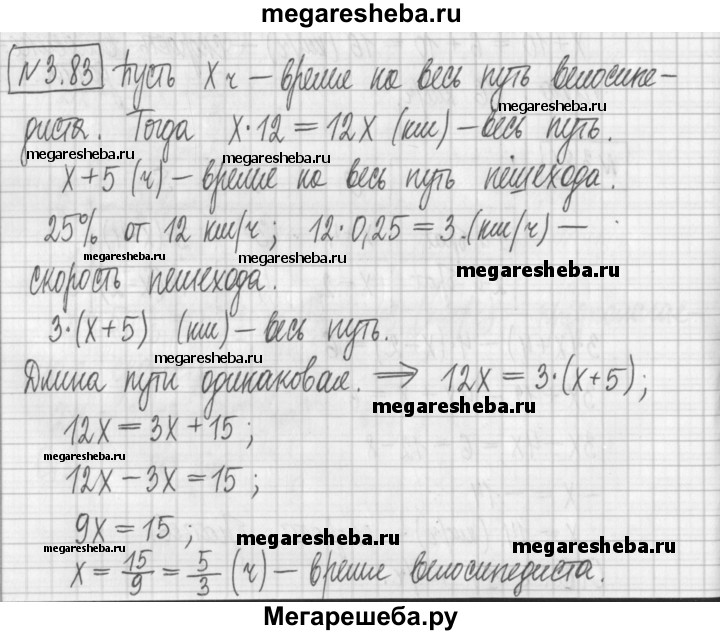 megaresheba.ru
№3.83 Пусть х ч – время на весь путь велосипе-
megaresheba.ru
диста. Тогда х·12=12х (км) – весь путь.
megaresheba.ru
megaresheba.ru
х+5 (ч) – время на весь путь пешехода.
megaresheba.ru
25% от 12 км/ч; 12·0,25=3.(км/ч) –
megaresheba.ru
megaresheba.ru
скорость пешехода.
3·(х+5) (км) – весь путь.
megaresheba.ru
Длина пути одинаковая. ⇒ 12х=3·(х+5);
megaresheba.ru
12х=3х+15;
megaresheba.ru
12х–3х=15;
9х=15;
megaresheba.ru
megaresheba.ru
megaresheba.ru
х=15/9=5/3 (ч) – время велосипедиста.
megaresheba.ru
megaresheba.ru
Мегарешеба.ру